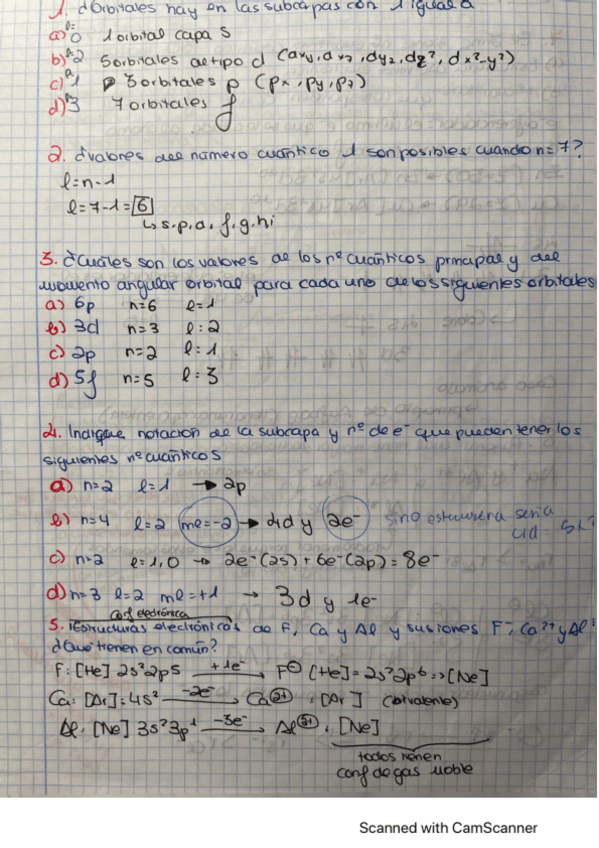 1. ¿Orbitales hay en las subcapas con l igual a
a) l=0 1 orbital capa s
b) l=2 5 orbitales de tipo d (dxy, dxz, dyz, dz², dx²-y²)
c) l=1 3 orbitales p (px, py, pz)
d) l=3 7 orbitales f
2. ¿valores del número cuántico l son posibles cuando n=7?
l=n-1
l=7-1=6
↳ s,p,d,f,g,h,i
3. ¿Cuáles son los valores de los nº cuánticos principal y del
momento angular orbital para cada uno de los siguientes orbitales
a) 6p n=6 l=1
b) 3d n=3 l=2
c) 2p n=2 l=1
d) 5f n=5 l=3
4. Indique notación de la subcapa y nº de e⁻ que pueden tener los
siguientes nº cuánticos
a) n=2 l=1 → 2p
b) n=4 l=2 ml=-2 → 4d y 2e⁻ si no estuviera seria
4d
c) n=2 l=1,0 → 2e⁻(2s) + 6e⁻(2p) = 8e⁻
d) n=3 l=2 ml=+1 → 3d y 1e⁻
conf electrónica
5. Estructuras electrónicas de F, Ca y Al y sus iones F⁻, Ca²⁺ y Al
¿Que tienen en común?
F: [He] 2s²2p5 +1e⁻→ F⊖ [He]=2s²2p⁶=>[Ne]
Ca: [Ar]: 4s² -2e⁻→ Ca2+ : [Ar] (bivalente)
Al: [Ne] 3s²3p¹ -3e⁻→ Al3+ : [Ne]
todos tienen
conf de gas noble
Scanned with CamScanner